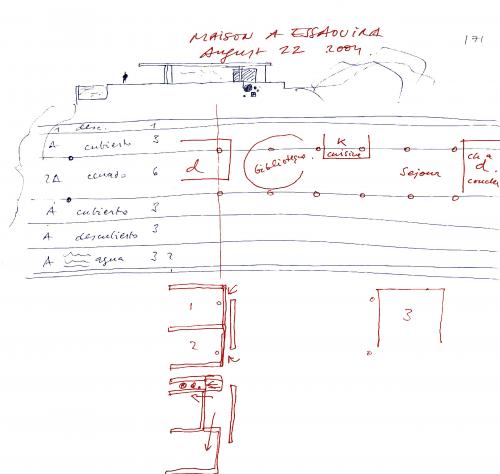 MAISON A ESSAOUIRA
August 22 2004.
171
1 desc. 1
A cubierto 3
2A cerrado 6
A cubierto 3
A descubierto 3
A agua 3 2
d
bibliotheque.
K
cuisine
Sejour
d.
1
2
3